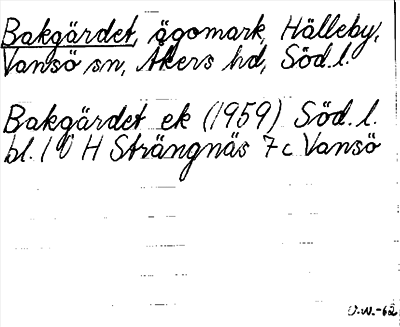 Bakgärdet, ägomark, Hälleby,
Vansö sn, Åkers hd, Söd. l.
Bakgärdet ek (1959) Söd. l.
bl. 10 H Strängnäs 7c Vansö
O.W.-62